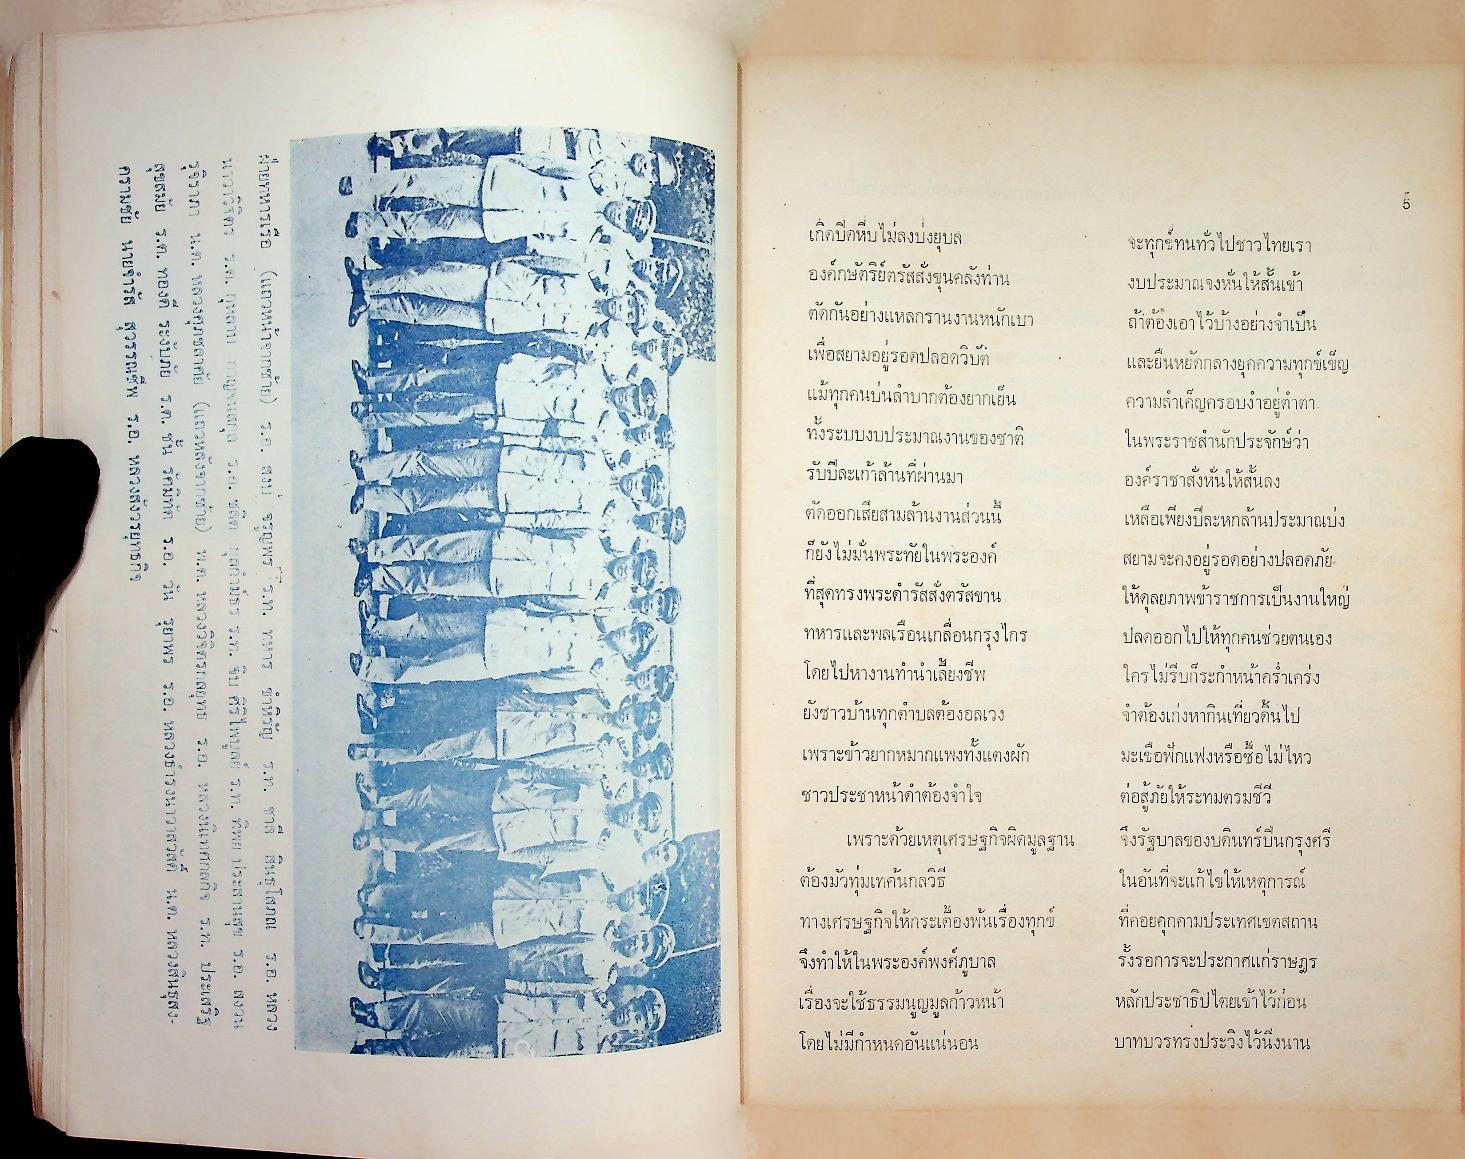 ฝ่ายทหารเรือ (แถวหน้าจากซ้าย) ร.อ. สงบ จรูญพร ร.ท. ทหาร ขำหิรัญ ร.ท. ชาลี สินธุโสภณ ร.อ. หลวง
นาวาวิจิตร ร.ต. กุหลาบ กาญจนสกุล ร.ต. ชลิต กุลกำม์ธร ร.ท. จิบ ศิริไพบูลย์ ร.ท. ทิพย์ ประสานสุข ร.อ. สงวน
รุจิราภา น.ต. หลวงศุภชลาศัย (แถวหลังจากซ้าย) พ.ต. หลวงวิจิตรกลยุทธ ร.อ. หลวงนิเทศกลกิจ ร.ท. ประเสริฐ
สุขสมัย ร.ต. ทองดี ระงับภัย ร.ต. ชั้น รัศมิทัต ร.อ. วัน รุยาพร ร.อ. หลวงธำรงนาวาสวัสดิ์ น.ต. หลวงสินธุสง-
ครามชัย นายจำรัส สุวรรณชีพ ร.อ. หลวงสังวรยุทธกิจ
5
เกิดปีดหีบไม่ลงบ่งยุบล จะทุกข์ทนทั่วไปชาวไทยเรา
องค์กษัตริย์ตรัสสั่งขุนคลังท่าน งบประมาณจงหั่นให้สั้นเข้า
ตัดกันอย่างแหลกรานงานหนักเบา ถ้าต้องเอาไว้บ้างอย่างจำเป็น
เพื่อสยามอยู่รอดปลอดวิบัติ และยืนหยัดกลางยุคความทุกข์เข็ญ
แม้ทุกคนบ่นลำบากต้องยากเย็น ความลำเค็ญครอบงำอยู่ตำตา
ทั้งระบบงบประมาณงานของชาติ ในพระราชสำนักประจักษ์ว่า
รับปีละเก้าล้านที่ผ่านมา องค์ราชาสั่งหั่นให้สั้นลง
ตัดออกเสียสามล้านงานส่วนนี้ เหลือเพียงปีละหกล้านประมาณบ่ง
ก็ยังไม่มั่นพระทัยในพระองค์ สยามจะคงอยู่รอดอย่างปลอดภัย
ที่สุดทรงพระดำรัสสั่งตรัสขาน ให้ดุลยภาพข้าราชการเป็นงานใหญ่
ทหารและพลเรือนเกลื่อนกรุงไกร ปลดออกไปให้ทุกคนช่วยตนเอง
โดยไปหางานทำนำเลี้ยงชีพ ใครไม่รีบก็ระกำหน้าคร่ำเคร่ง
ยังชาวบ้านทุกตำบลต้องอลเวง จำต้องเก่งหากินเที่ยวดิ้นไป
เพราะข้าวยากหมากแพงทั้งแตงผัก มะเขือฟักแฟงหรือซื้อไม่ไหว
ชาวประชาหน้าดำต้องจำใจ ต่อสู้ภัยให้ระทมตรมชีวี
เพราะด้วยเหตุเศรษฐกิจผิดมูลฐาน จึงรัฐบาลของบดินทร์ปิ่นกรุงศรี
ต้องมัวทุ่มเทค้นกลวิธี ในอันที่จะแก้ไขให้เหตุการณ์
ทางเศรษฐกิจให้กระเตื้องพ้นเรื่องทุกข์ ที่คอยคุกคามประเทศเขตสถาน
จึงทำให้ในพระองค์พงศ์ภูบาล รั้งรอการจะประกาศแก่ราษฎร
เรื่องจะใช้ธรรมนูญมูลก้าวหน้า หลักประชาธิปไตยเข้าไว้ก่อน
โดยไม่มีกำหนดอันแน่นอน บาทบวรทรงประวิงไว้นิ่งนาน